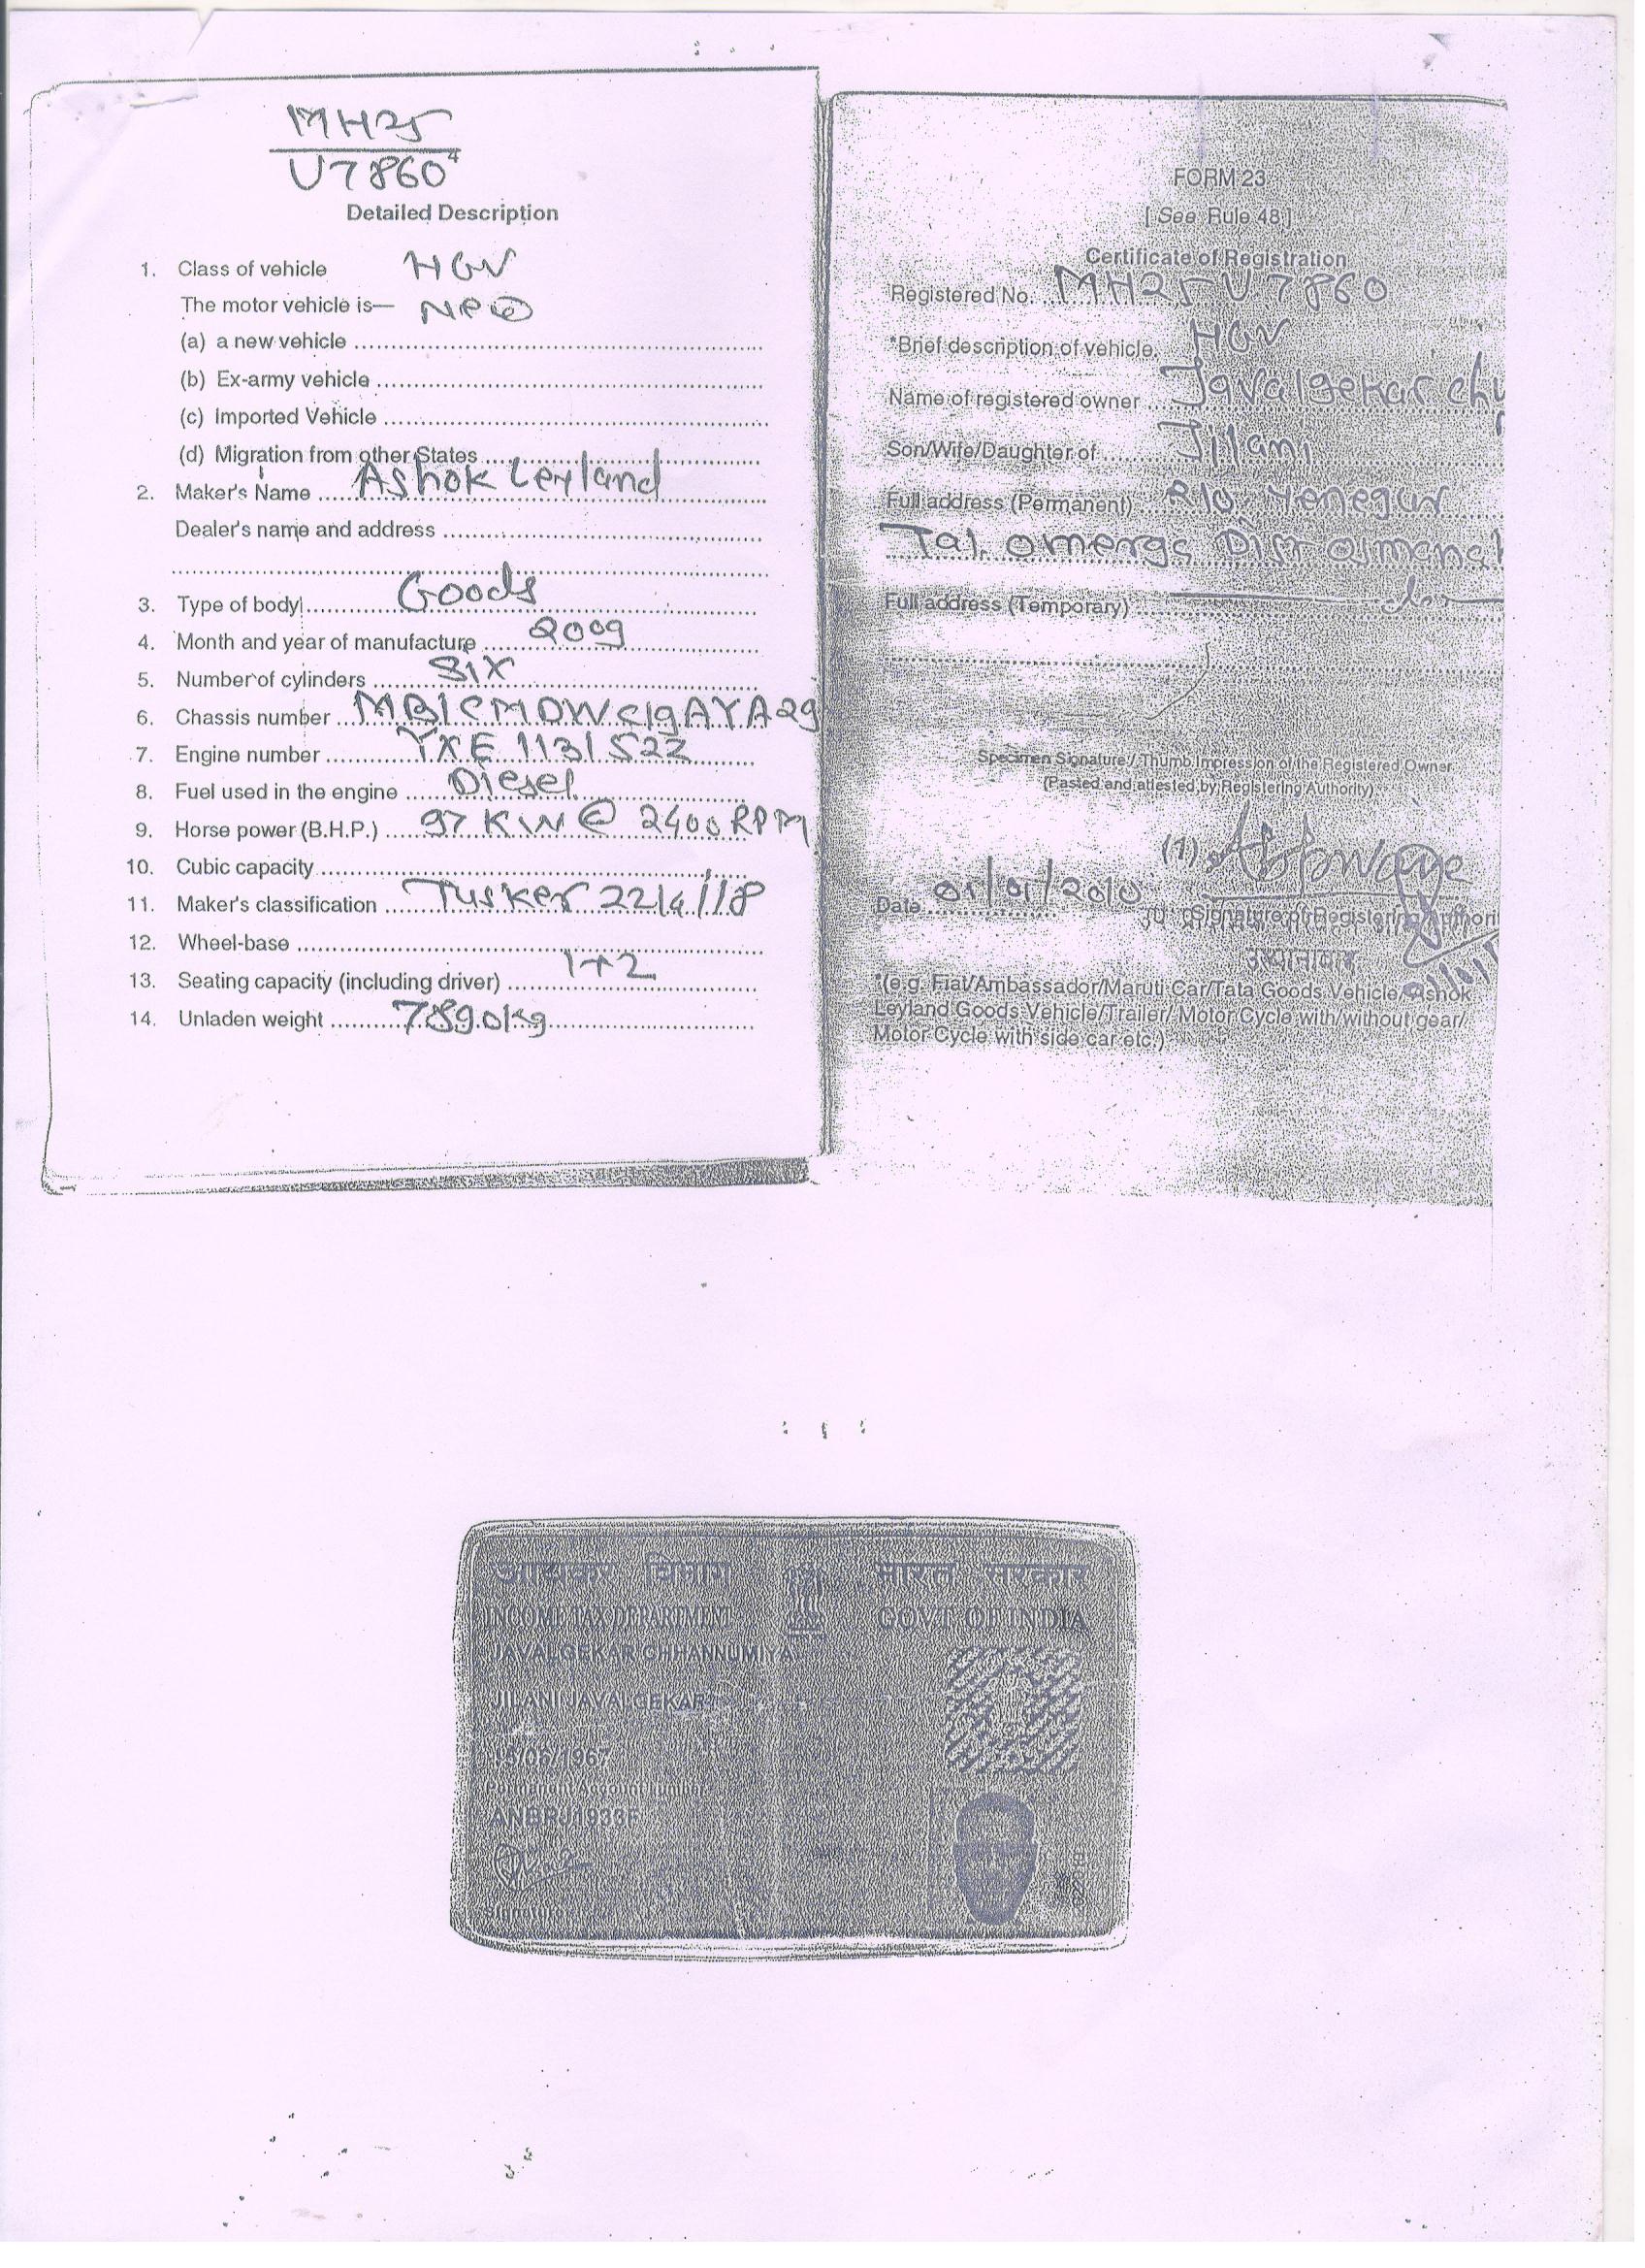 MH25
U7860
Detailed Description
1. Class of vehicle HGV
The motor vehicle is—
(a) a new vehicle
(b) Ex-army vehicle
(c) Imported Vehicle
(d) Migration from other States
2. Maker's Name Ashok Leyland
Dealer's name and address
3. Type of body Goods
4. Month and year of manufacture 2009
5. Number of cylinders Six
6. Chassis number
7. Engine number
8. Fuel used in the engine Diesel
9. Horse power (B.H.P.) 97 KW @ 2400 RPM
10. Cubic capacity
11. Maker's classification Tusker
12. Wheel-base
13. Seating capacity (including driver) 1+2
14. Unladen weight
FORM 23
[ See Rule 48 ]
Certificate of Registration
Registered No. MH25U7860
*Brief description of vehicle. HGV
Name of registered owner Javalgekar
Son/Wife/Daughter of Jilani
Full address (Permanent) R/O. Yenegur
Tal. omerga Dist
Full address (Temporary)
Specimen Signature / Thumb Impression of the Registered Owner
(Pasted and attested by Registering Authority)
(1)
Date 01/01/2010
Signature of Registering
*(e.g. Fiat/Ambassador/Maruti Car/Tata Goods Vehicle/Ashok
Leyland Goods Vehicle/Trailer/ Motor Cycle with/without gear/
Motor Cycle with side car etc.)
आयकर विभाग भारत सरकार
INCOME TAX DEPARTMENT GOVT. OF INDIA
JAVALGEKAR CHHANNUMIYA
JILANI JAVALGEKAR
Permanent Account Number
Signature